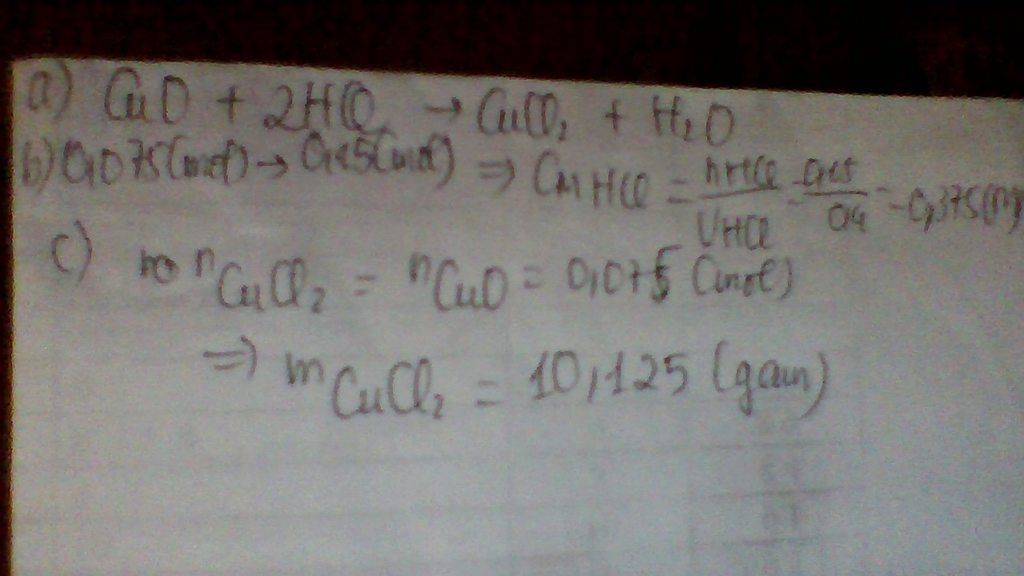 a) CuO + 2HCl → CuCl₂ + H₂O
b) 0,075(mol) → 0,15(mol) ⇒ CM HCl = nHCl / VHCl = 0,15 / 0,4 = 0,375(M)
c) nCuCl₂ = nCuO = 0,075 (mol)
⇒ mCuCl₂ = 10,125 (gam)